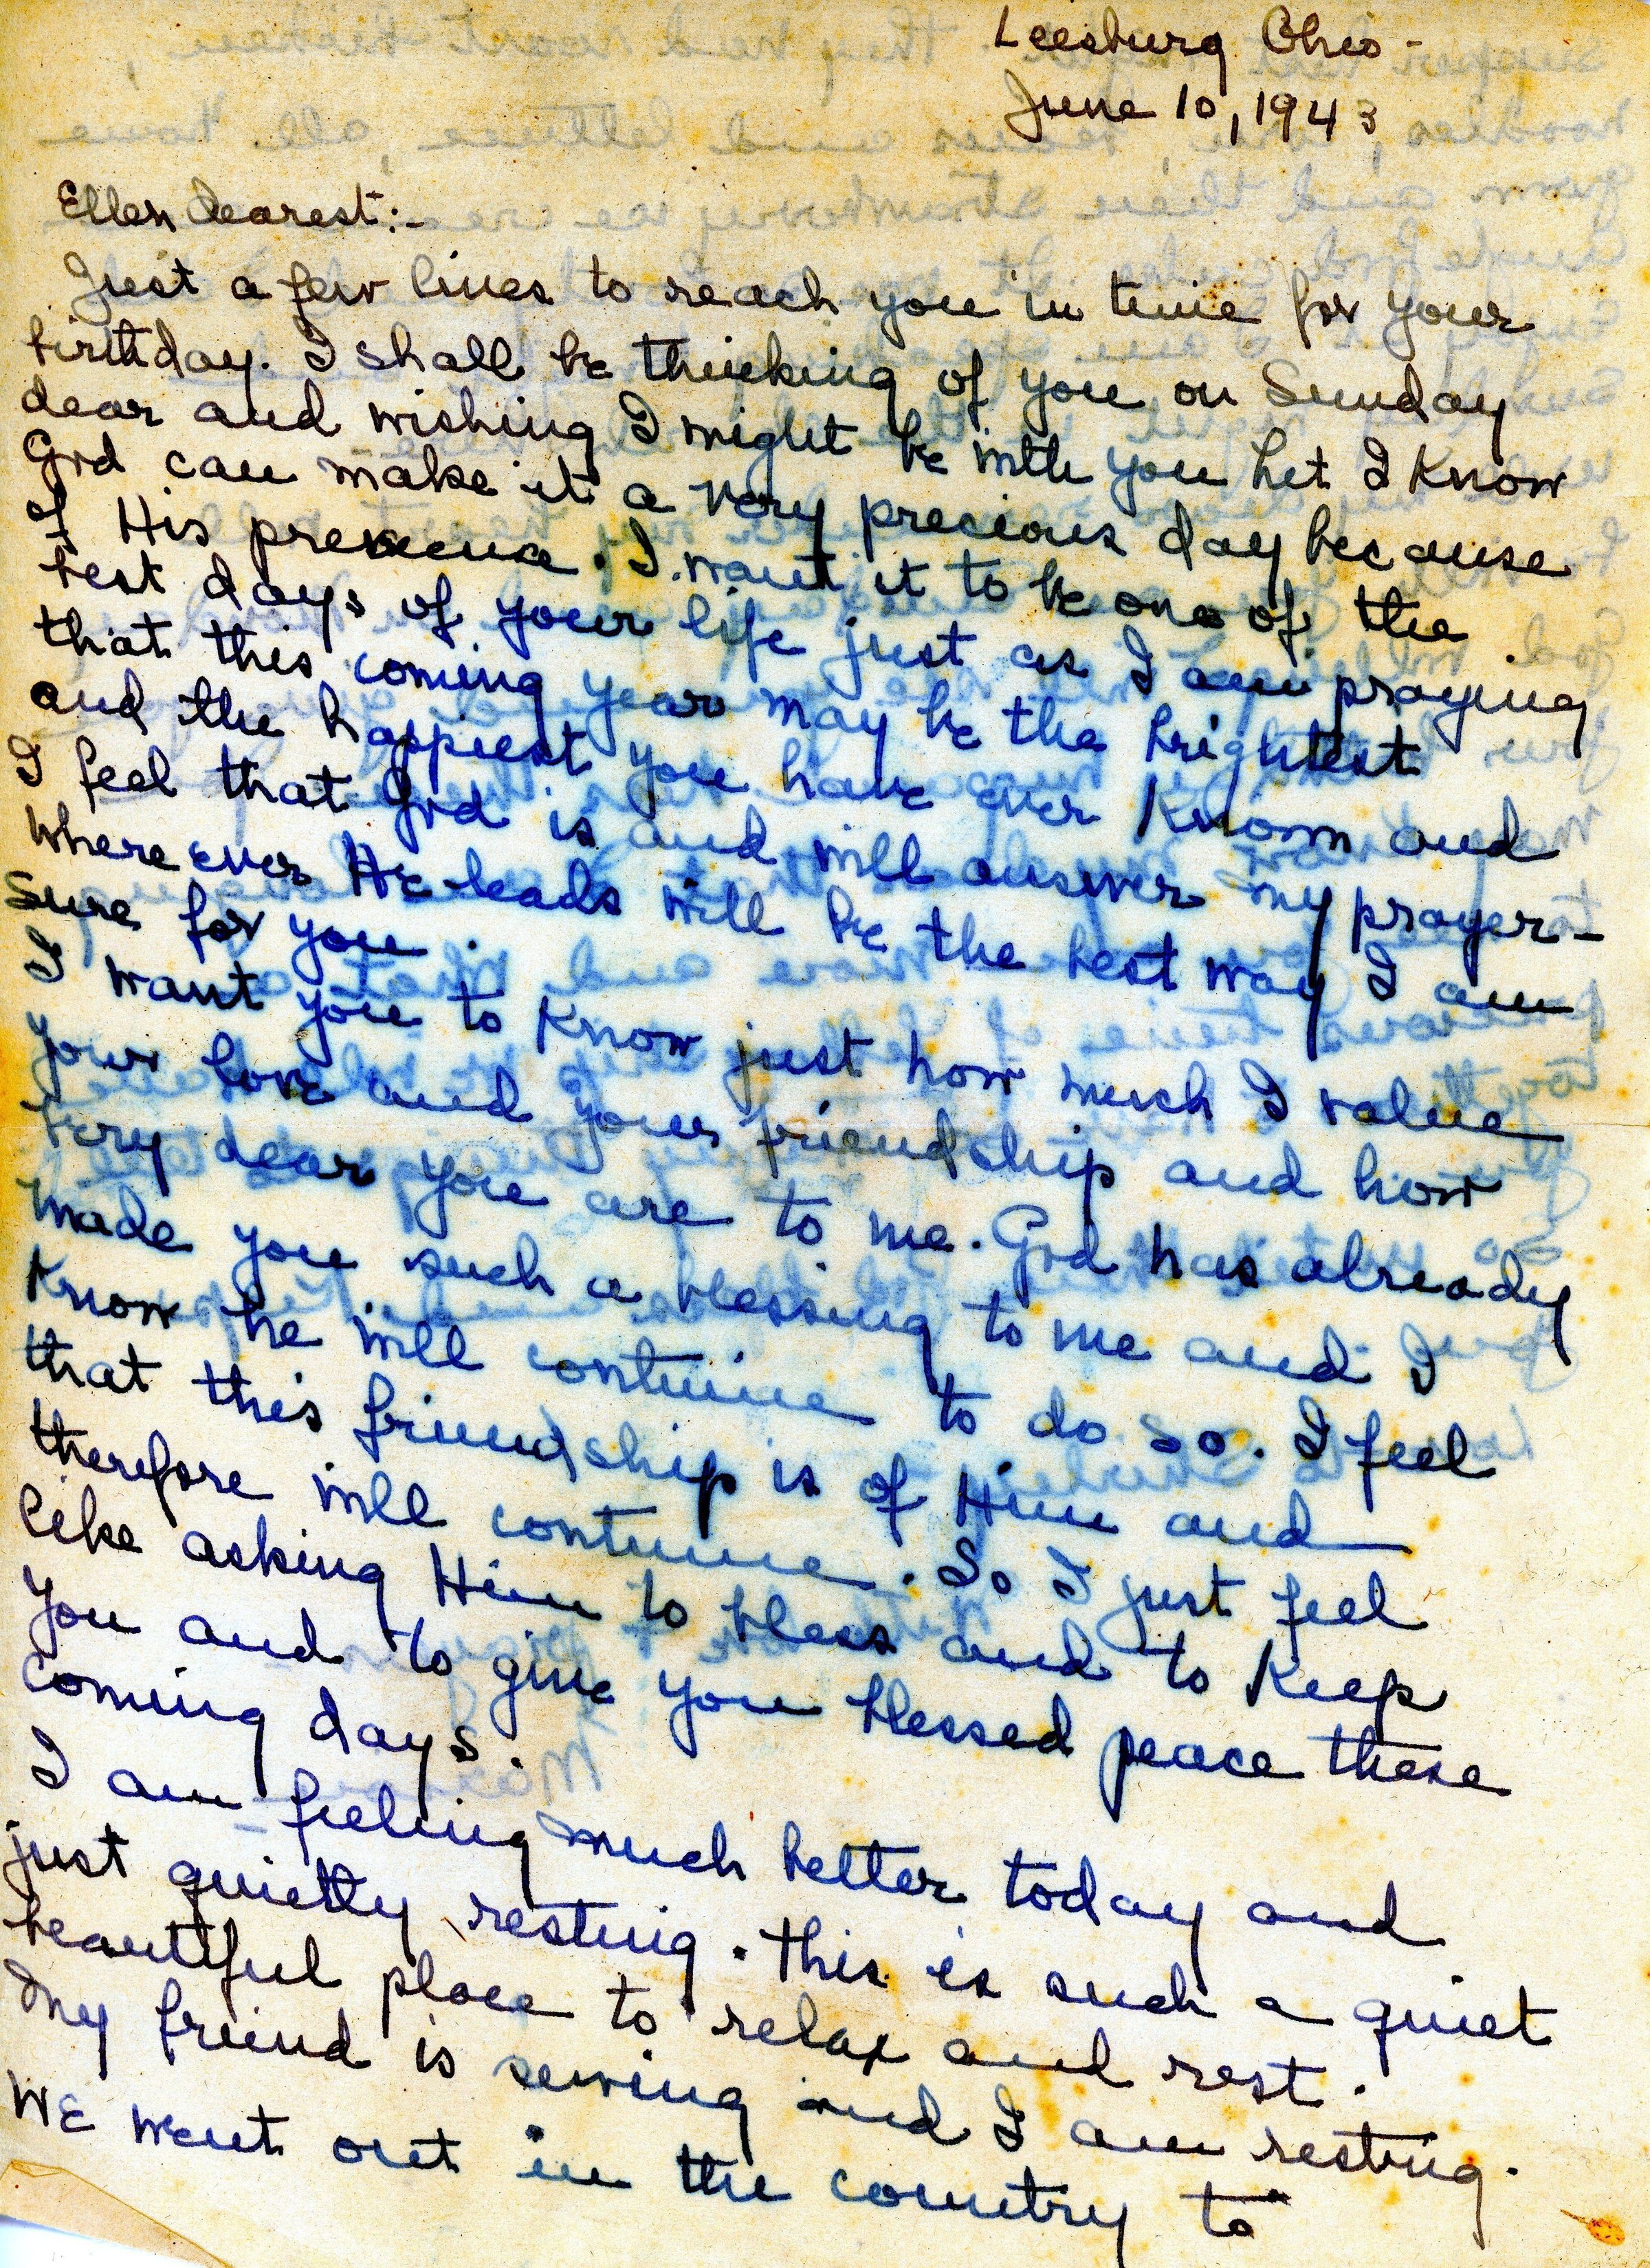 Leesburg Ohio -
June 10, 1943
Ellen dearest:-
Just a few lines to reach you in time for your
birthday. I shall be thinking of you on Sunday
dear and wishing I might be with you but I know
God can make it a very precious day because
of His presence. I want it to be one of the
best days of your life just as I am praying
that this coming year may be the brightest
and the happiest you have ever known and
I feel that God is and will answer my prayer -
Where ever He leads will be the best way I am
sure for you.
I want you to know just how much I value
your love and your friendship and how
very dear you are to me. God has already
made you such a blessing to me and I
know he will continue to do so. I feel
that this friendship is of Him and
therefore will continue. So I just feel
like asking Him to bless and to keep
you and to give you blessed peace these
coming days.
I am feeling much better today and
just quietly resting. This is such a quiet
beautiful place to relax and rest.
My friend is sewing and I am resting.
We went out in the country to